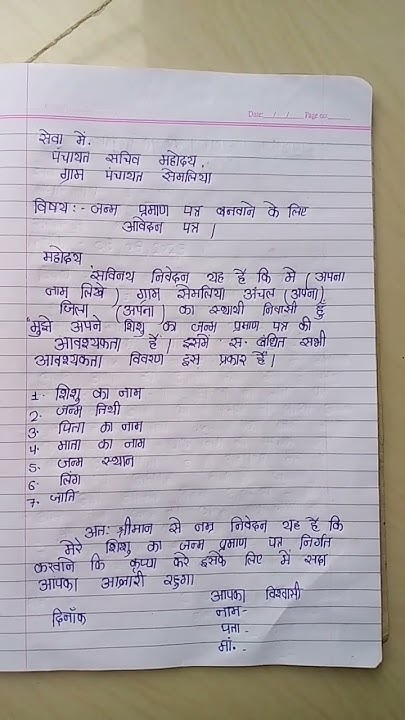 Date: __/__/__ Page no:____
सेवा में.
पंचायत सचिव महोदय.
ग्राम पंचायत सेमलिया
विषय:- जन्म प्रमाण पत्र बनवाने के लिए
आवेदन पत्र।
महोदय
सविनय निवेदन यह है कि मै (अपना
नाम लिखे) ग्राम सेमलिया अंचल (अपना)
जिला (अपना) का स्थाथी निवासी हुँ
मुझे अपने शिशु का जन्म प्रमाण पत्र की
आवश्यकता है। इसमे स. बंधित सभी
आवश्यकता विवरण इस प्रकार हैं।
1. शिशु का नाम
2. जन्म तिथी
3. पिता का नाम
4. माता का नाम
5. जन्म स्थान
6. लिंग
7. जाति
अत: श्रीमान से नम्र निवेदन यह हैं कि
मेरे शिशु का जन्म प्रमाण पत्र निर्गत
करवाने कि कृप्या करे इसके लिए में सदा
आपका आभारी रहुगा
आपका विश्वासी
दिनाँक नाम-
पता-
मों.-